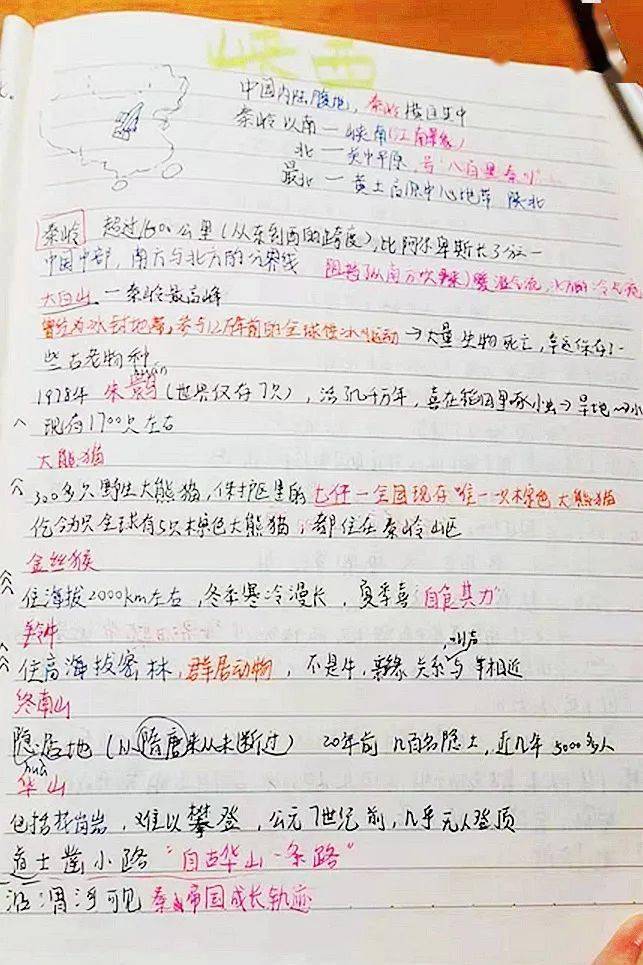 陕西
中国内陆腹地，秦岭横亘其中
秦岭以南一陕南(江南景象)
北一关中平原，号"八百里秦川"
最北一黄土高原中心地带 陕北
秦岭 超过1600公里（从东到西的跨度），比阿尔卑斯长3分一
中国中部，南方与北方的分界线 阻挡了从南方吹来暖湿气流，北方的冷气流
太白山 一秦岭最高峰
曾经为冰封地带，参与12万年前的全球性冰川运动→大量生物死亡，幸运保存了一
些古老物种
huán
1978年 朱鹮（世界仅存7只），活了几千万年，喜在稻田里啄小虫→旱地
现存1700只左右
大熊猫
300多只野生大熊猫，保护区里的七仔一全国现存唯一一只棕色大熊猫
全球有5只棕色大熊猫，都住在秦岭山区
金丝猴
住海拔2000km左右，冬季寒冷漫长，夏季喜自食其力
羚牛
住高海拔密林，群居动物，不是牛，亲缘关系与羊相近
终南山
隐居地（从隋唐来从未断过） 20年前 几百名隐士，近几年5000多人
huà
华山
包括花岗岩，难以攀登，公元7世纪前，几乎无人登顶
道士凿小路"自古华山一条路"
沿渭河可见秦帝国成长轨迹